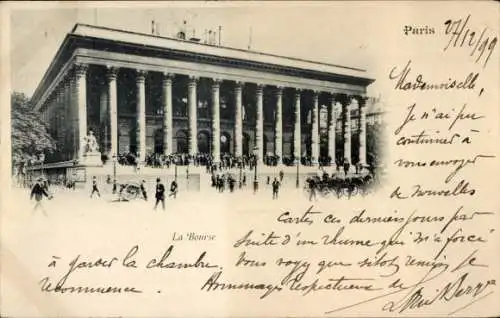 Paris 27/12/99
Mademoiselle,
je n'ai pu
continuer à
vous envoyer
de nouvelles
Cartes ces derniers jours par
Suite d'un rhume qui m'a forcé
à garder la chambre,
Vous voyez que sitôt remis je
recommence.
Hommages respectueux de
La Bourse